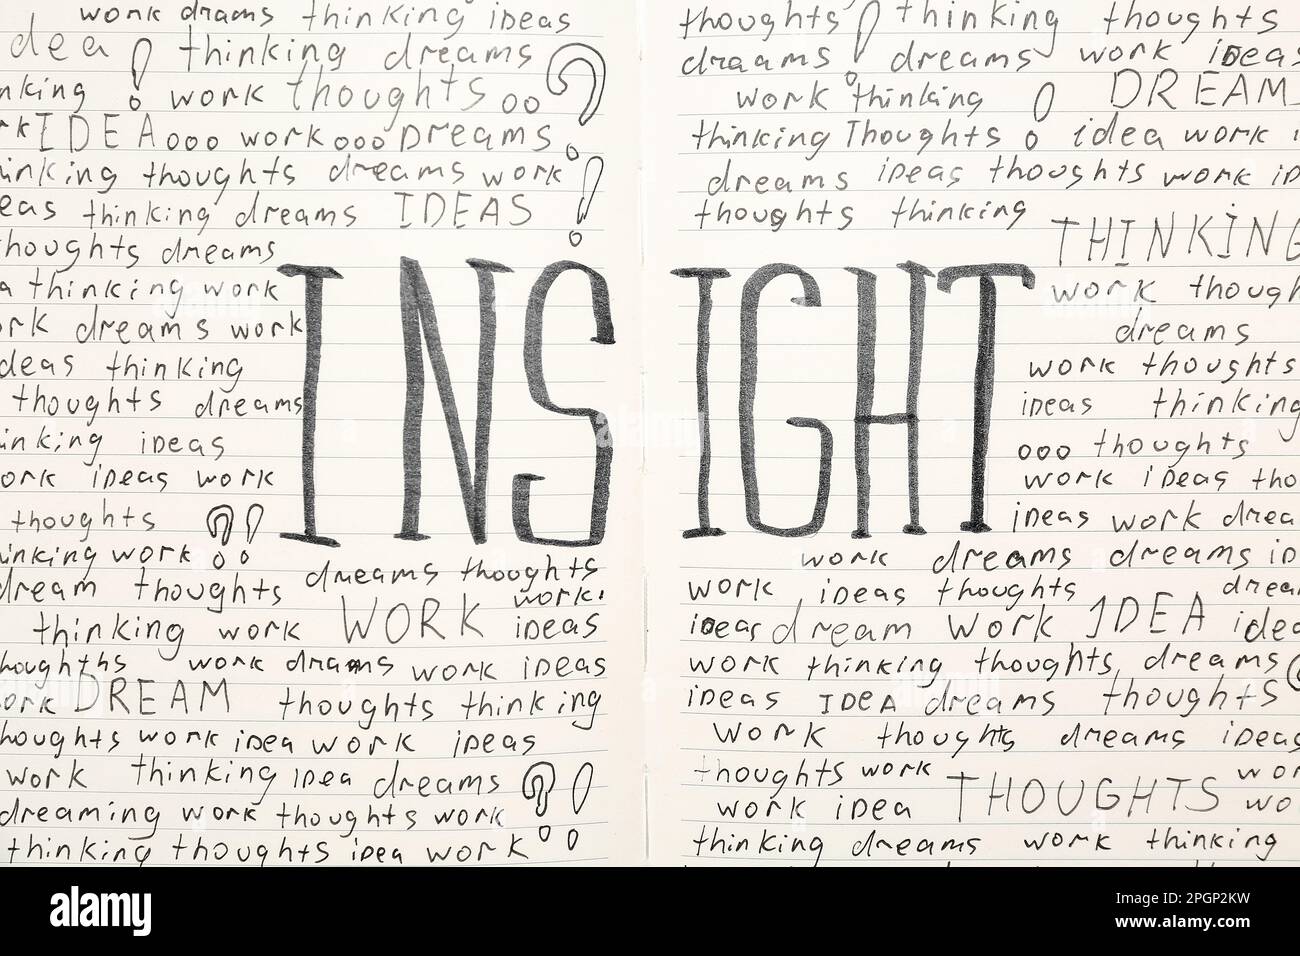 work drams thinking ideas
idea ! thinking dreams ?
nking ! work thoughts oo
rk IDEA ooo work ooo Dreams
hinking thoughts dreams work !
eas thinking dreams IDEAS
thoughts dreams
a thinking work
ork dreams work
deas thinking
thoughts dreams
inking ideas
ork ideas work
thoughts ? !
inking work
dreams thoughts
dream thoughts
work.
thinking work WORK ideas
houghths work drams work ideas
ork DREAM thoughts thinking
houghts work idea work ideas
work thinking idea dreams ? !
dreaming work thoughts work
thinking thoughts idea work
INSIGHT
thoughts ! thinking thoughts
draams dreams work ideas
work thinking ! DREAMS
thinking Thoughts idea work i
dreams ideas thoughts work id
thoughts thinking
THINKING
work though
dreams
work thoughts
ideas thinking
ooo thoughts
work ideas tho
ideas work drea
work dreams dreams id
work ideas thoughts drear
ideas dream work IDEA idea
work thinking thoughts dreams
ideas IDEA dreams thoughts
work thoughts dreams ideas
thoughts work THOUGHTS wor
work idea wo
thinking dreams work thinking
alamy
Image ID: 2PGP2KW
www.alamy.com